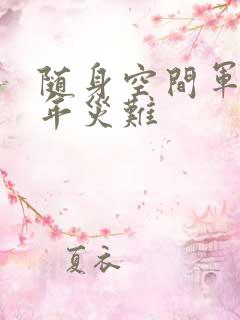 随身空間軍
年災難
夏衣